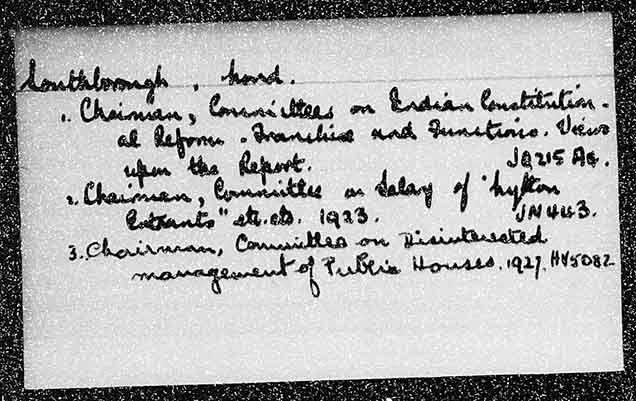 Southborough, Lord.
1. Chairman, Committees on Indian Constitution-
al Reform. Franchise and Functions. Views
upon the Report. JQ215 A4.
2. Chairman, Committee on Salary of "Lytton
Entrants" etc. etc. 1923. JN443.
3. Chairman, Committee on Disinterested
management of Public Houses. 1927. HV5082